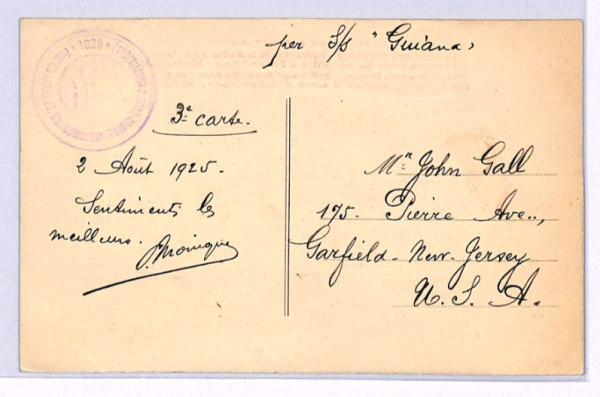 per S/S "Guiana"
1925
3e carte.
2 Août 1925.
Sentiments les
meilleurs.
Mr. John Gall
175. Pierre Ave.,
Garfield - New-Jersey
U. S. A.